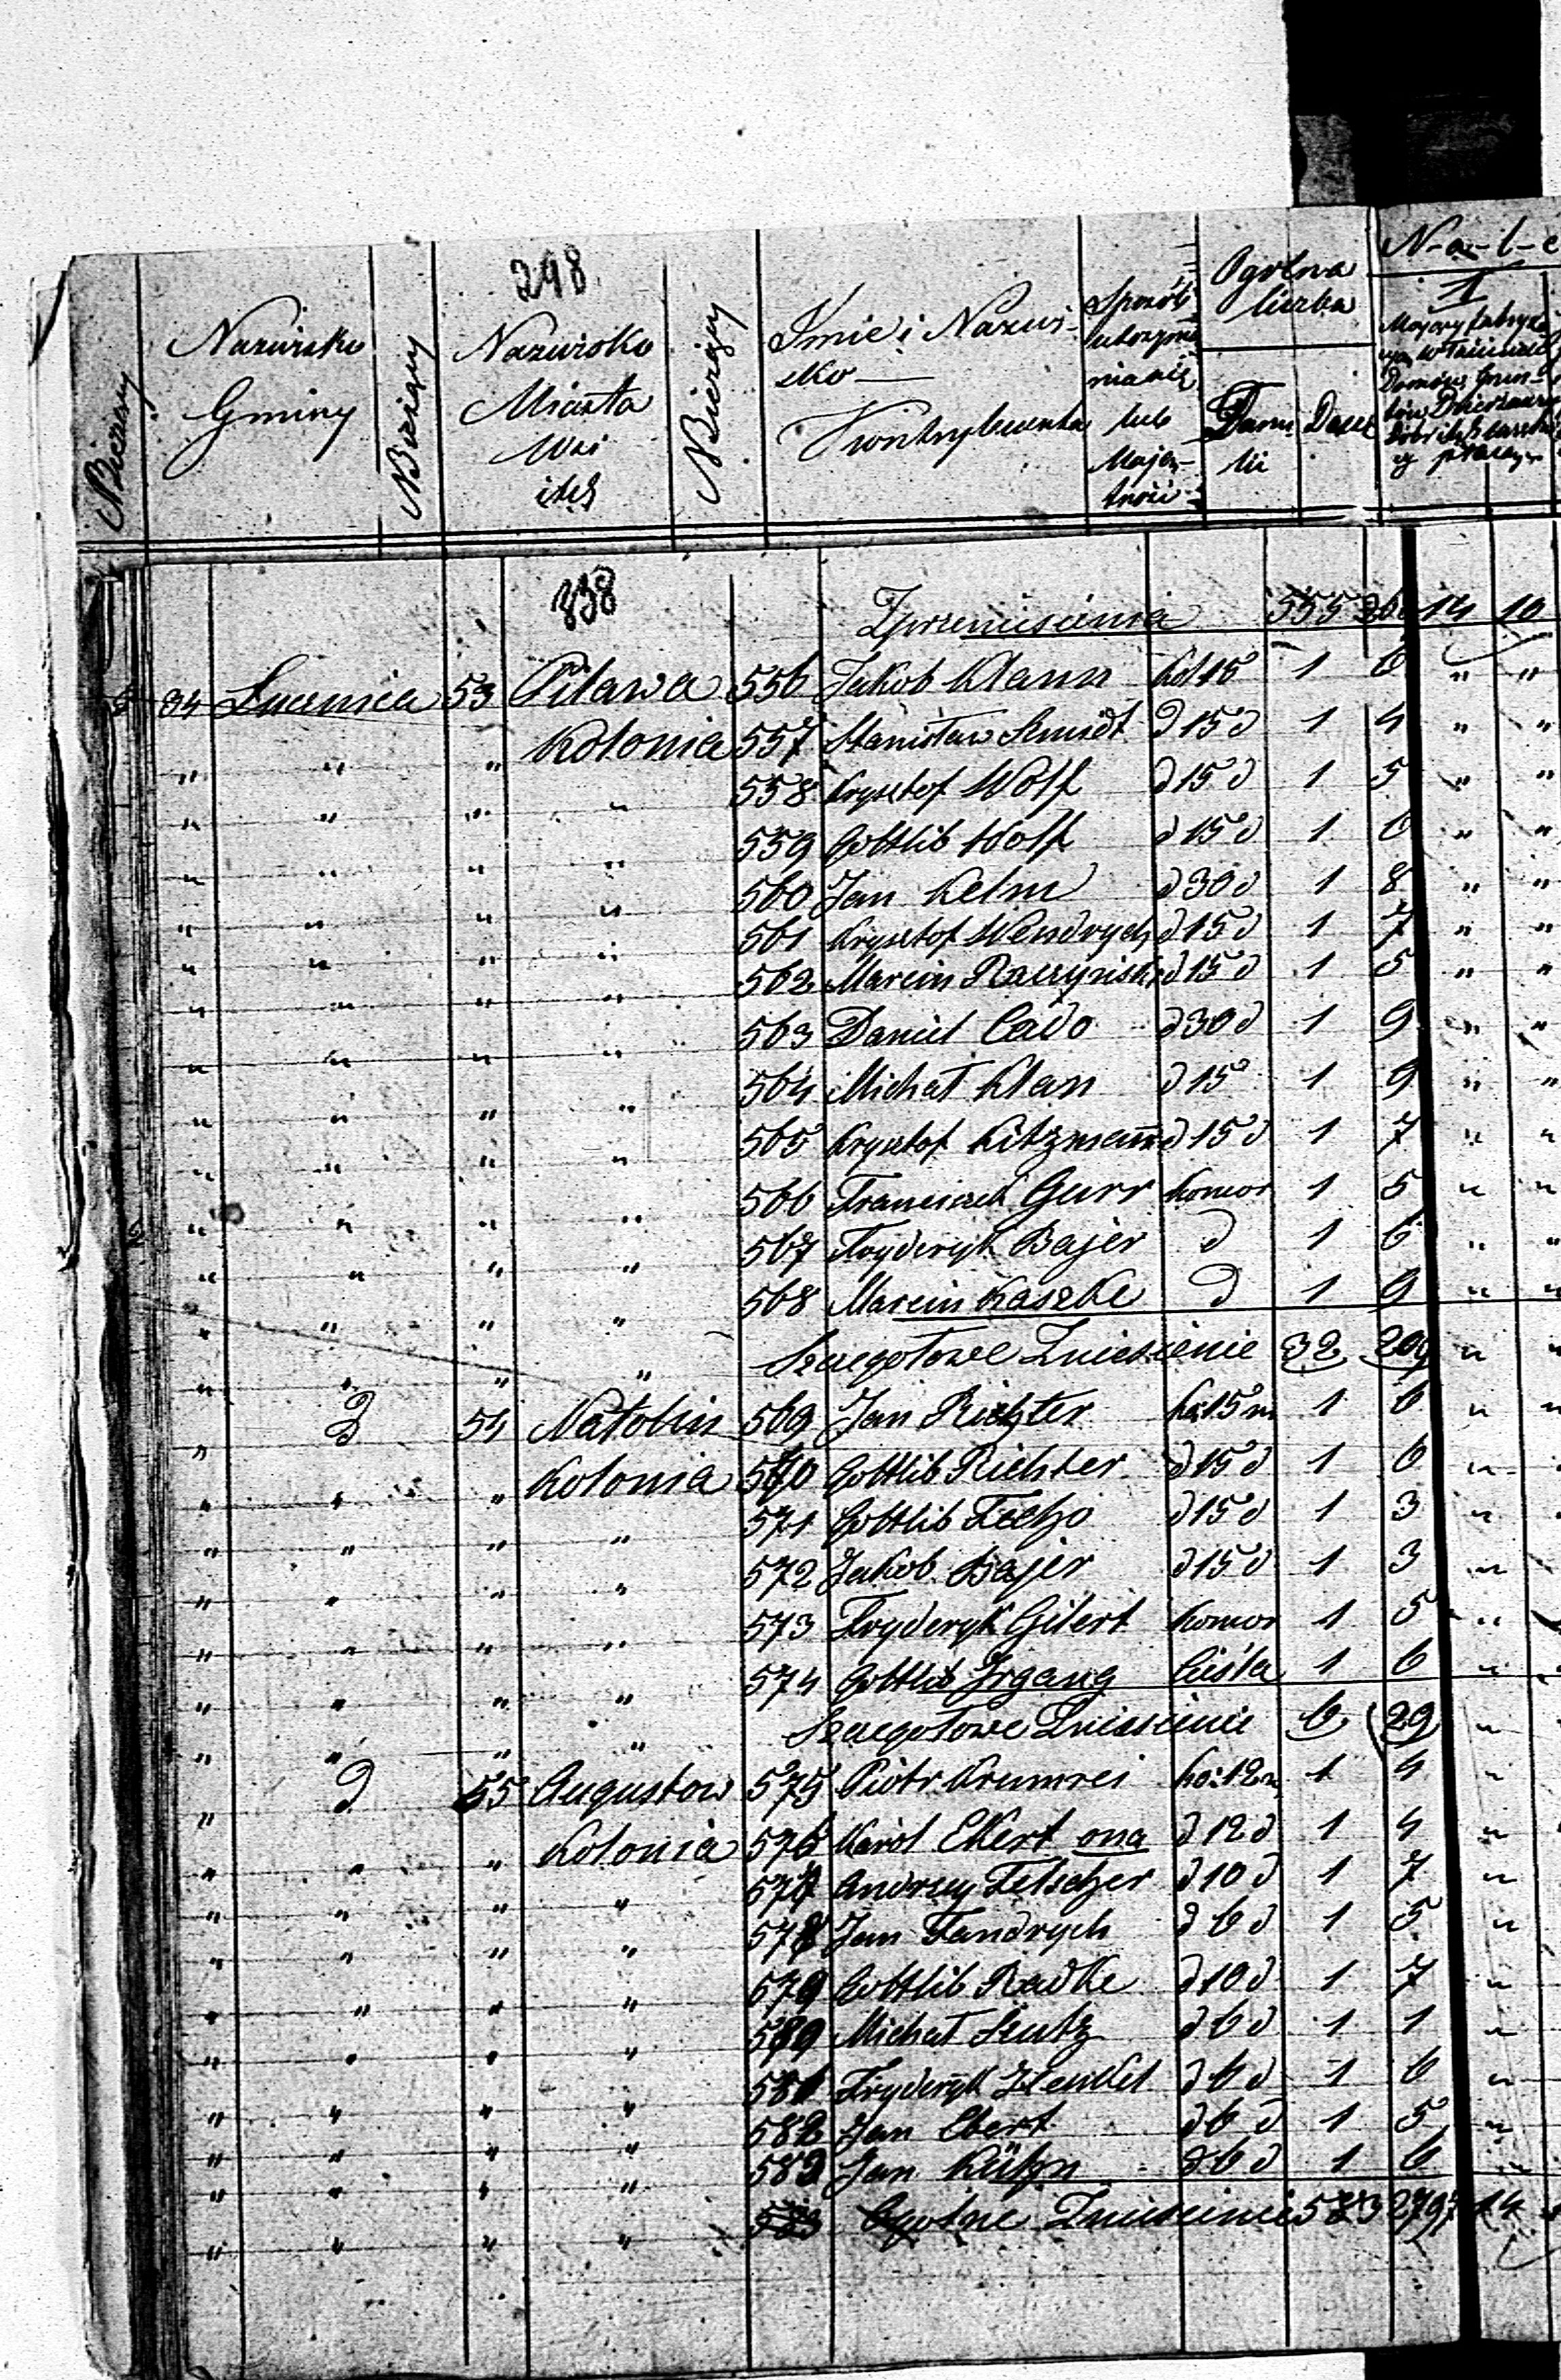 298
N-a-l-e
N Bieżący
Nazwisko Gminy
N Bieżący
Nazwisko Miasta Wsi itd
N Bieżący
Imie i Nazwisko Kontrybuenta
Sposób lub Majętności
Ogólna liczba
Familii Dusz
1
338
Zprzeniesienia 555 14 10
34 Lucimia 53 Pilawa 556 Jakob Klann Kol 15 1 6 " "
" " " Kolonia 557 Stanisław Szmidt d 15 d 1 4 " "
" " " " 558 Krysztof Wolf d 15 d 1 5 " "
" " " " 559 Gottlib Wolf d 15 d 1 6 " "
" " " " 560 Jan Kelm d 30 d 1 8 " "
" " " " 561 Krysztof Wendrych d 15 d 1 7 " "
" " " " 562 Marcin Raczyński d 15 d 1 5 " "
" " " " 563 Daniel Cado d 30 d 1 9 " "
" " " " 564 Michał Klan d 15 1 9 " "
" " " " 565 Krysztof Kitzmann d 15 d 1 7 " "
" " " " 566 Franciszek Gurr Komor 1 5 " "
" " " " 567 Fryderyk Bajer d 1 6 " "
" " " " 568 Marcin Kaszke d 1 9 " "
" " " " Szczegółowe Zniesienie 32 209 " "
" d 54 Natolin 569 Jan Richter Ko 15 m 1 6 " "
" " " Kolonia 570 Gottlib Richter d 15 d 1 6 "
" " " " 571 Gottlib d 15 d 1 3 "
" " " " 572 Jakob Bajer d 15 d 1 3 "
" " " " 573 Fryderyk Gilert Komor 1 5 "
" " " " 574 Gottlib Irgang Cieśla 1 6 "
" " " " Szczegółowe Zniesienie 6 29 "
" d 55 Augustow 575 Piotr Krumrei Ko: 12 m 1 4 "
" " " Kolonia 576 Karol Ekert ona d 12 d 1 4 "
" " " " 577 Andrzey Felscher d 10 d 1 7 "
" " " " 578 Jan Fandrych d 6 d 1 5 "
" " " " 579 Gottlib Radke d 10 d 1 7 "
" " " " 580 Michał Szulz d 6 d 1 1 "
" " " " 581 Fryderyk Henkel d 6 d 1 6 "
" " " " 582 Jan Ebert d 6 d 1 5 "
" " " " 583 Jan Kühn d 6 d 1 6 "
" " " " Ogólne Zniesienie 583 2797 14